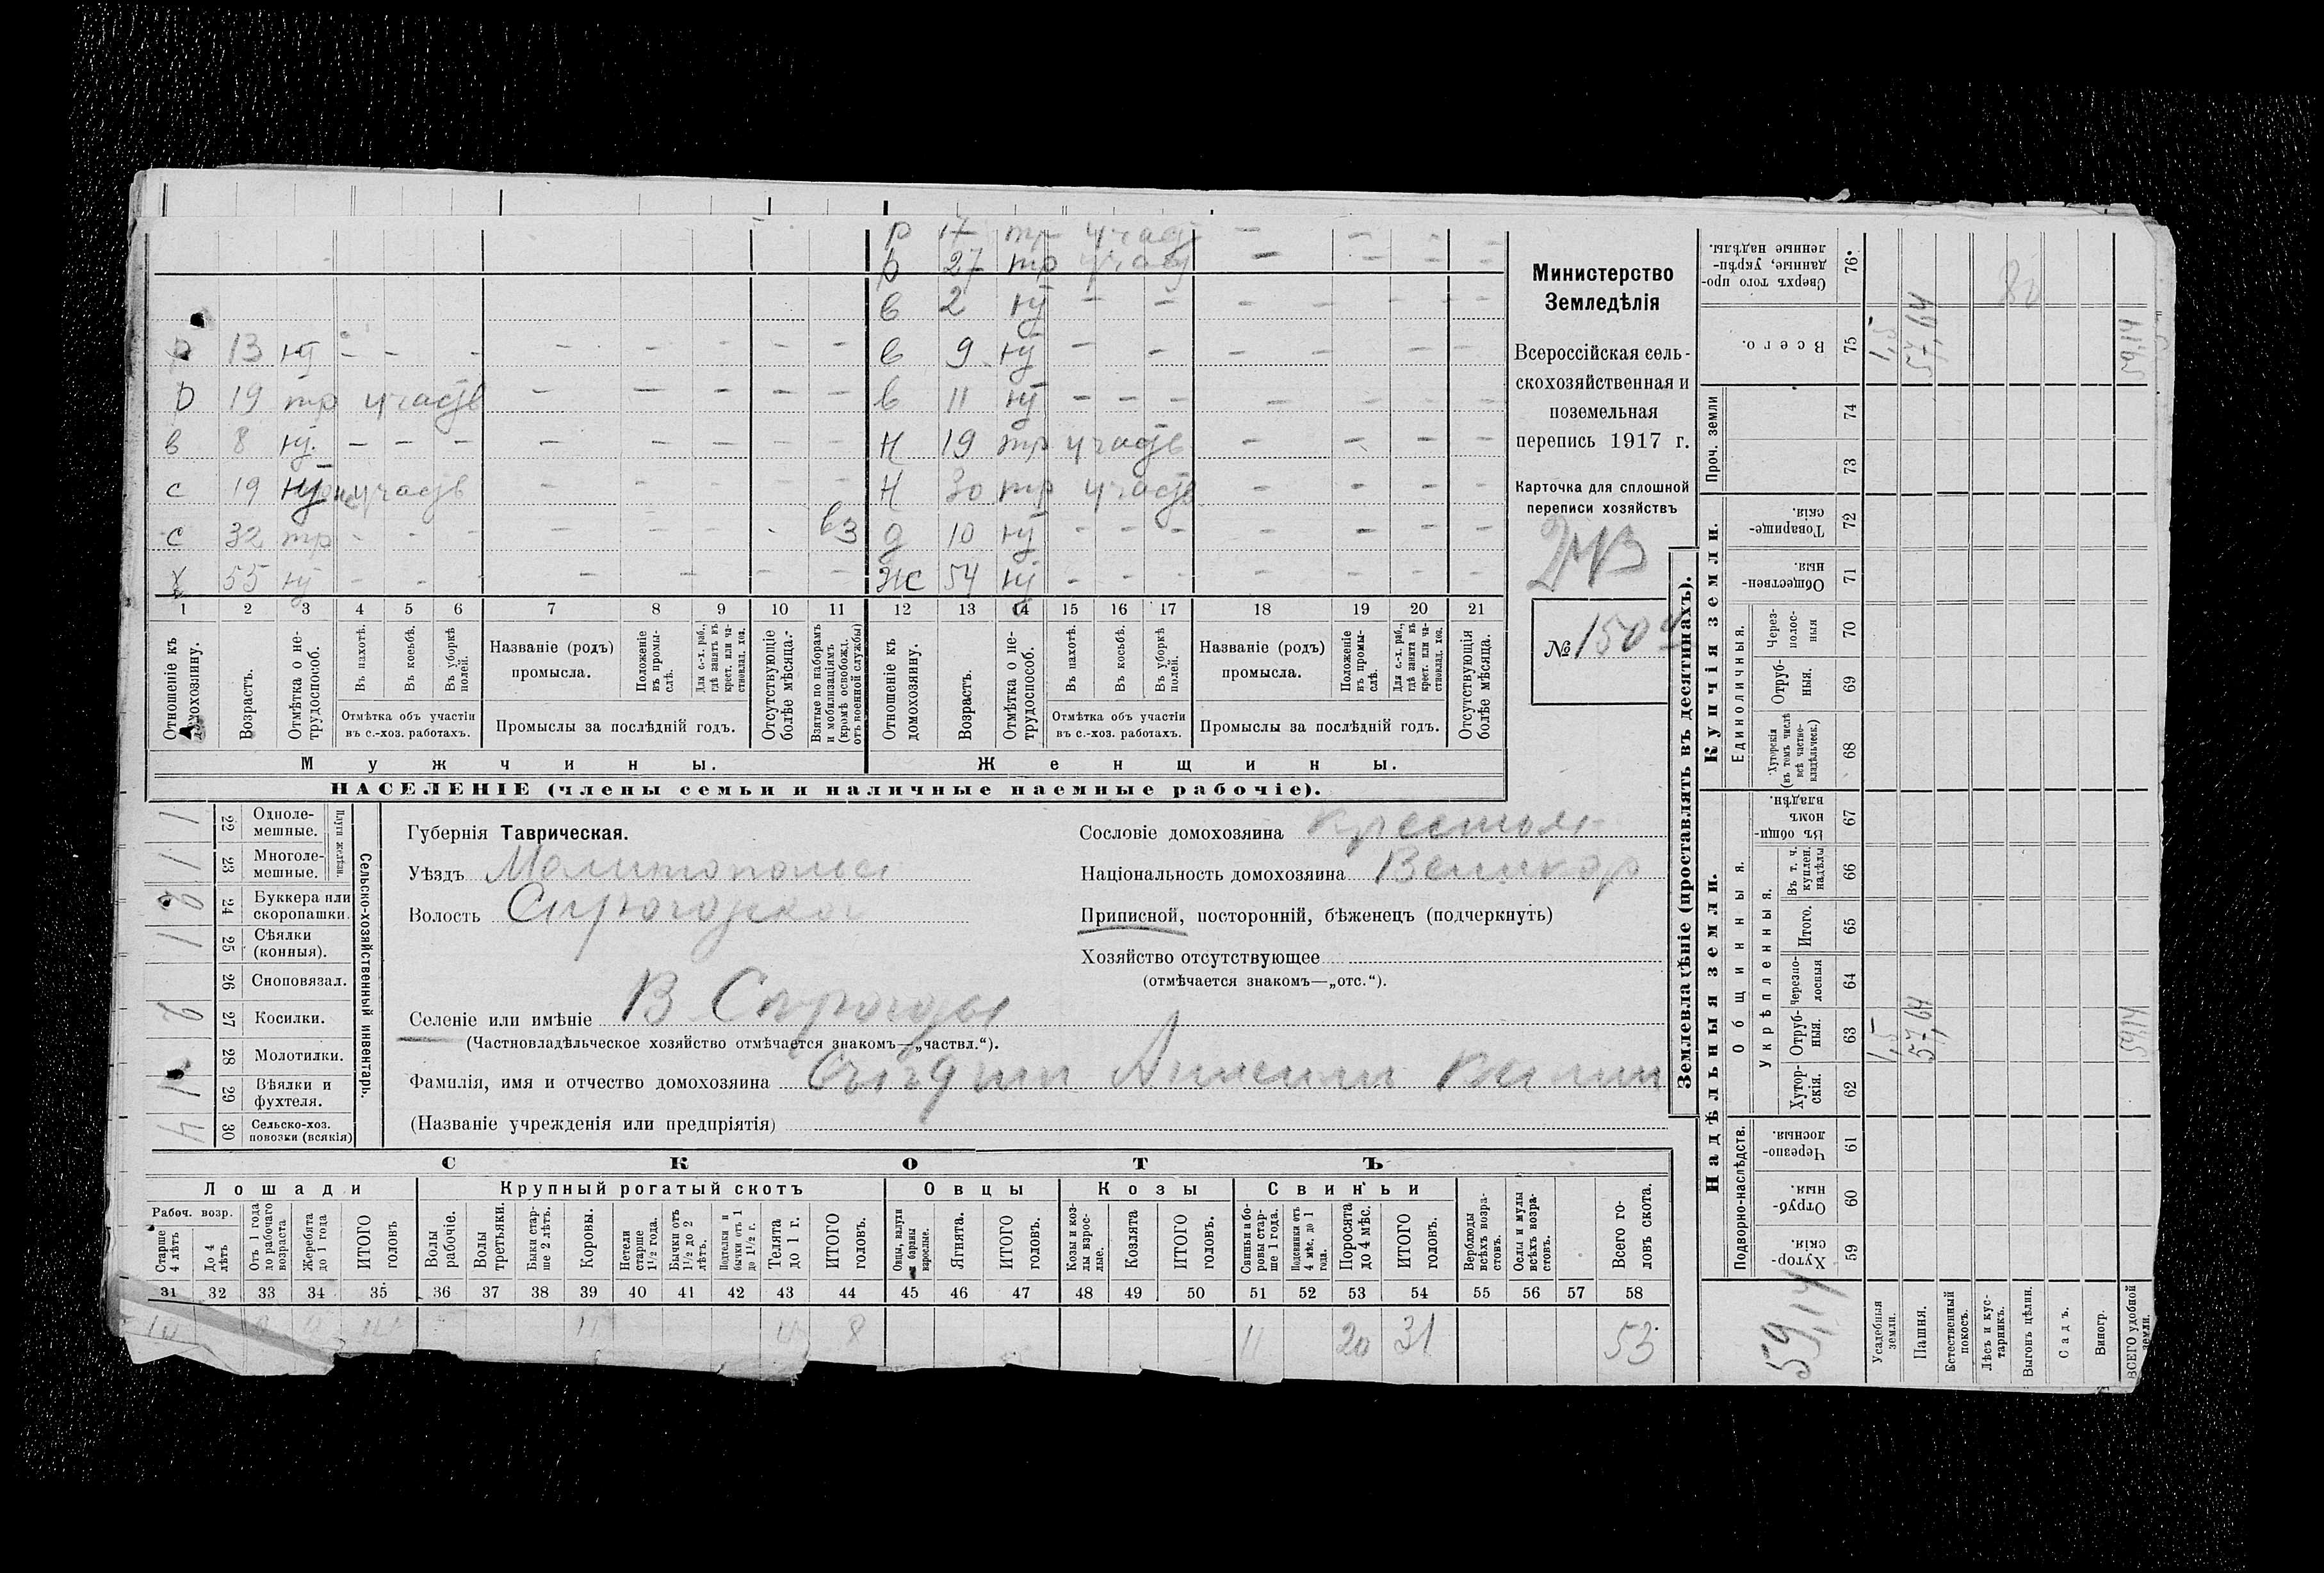 р 17 тр участ — — — —
р 27 тр участ — — — —
в 2 нт — — — — — —
р 13 нт — — — — — — — — в 9 нт — — — — — —
р 19 тр участв — — — — — в 11 нт — — — — — — —
в 8 нт. — — — — — — — — Н 19 тр участв — — — —
с 19 участв — — — — — Н 30 тр участв — — — —
с 32 тр — — — — — — вз д 10 нт — — — — — — —
х 55 нт — — — — — — — Ж 54 нт — — — — — — —
1 2 3 4 5 6 7 8 9 10 11 12 13 14 15 16 17 18 19 20 21
Отношеніе къ домохозяину.
Возрастъ.
Отмѣтка о нетрудоспособ.
Въ пахотѣ.
Въ косьбѣ.
Въ уборкѣ полей.
Отмѣтка объ участіи въ с.-хоз. работахъ.
Названіе (родъ) промысла.
Положеніе въ промыслѣ.
Для с.-х. раб., гдѣ занятъ въ крест. или частновлад. хоз.
Промыслы за послѣдній годъ.
Отсутствующіе болѣе мѣсяца.
Взятые по наборамъ и мобилизаціямъ (кромѣ освобожд. отъ военной службы)
Отношеніе къ домохозяину.
Возрастъ.
Отмѣтка о нетрудоспособ.
Въ пахотѣ.
Въ косьбѣ.
Въ уборкѣ полей.
Отмѣтка объ участіи въ с.-хоз. работахъ.
Названіе (родъ) промысла.
Положеніе въ промыслѣ.
Для с.-х. раб., гдѣ занята въ крест. или частновлад. хоз.
Промыслы за послѣдній годъ.
Отсутствующія болѣе мѣсяца.
Мужчины.
Женщины.
НАСЕЛЕНІЕ (члены семьи и наличные наемные рабочіе).
Министерство
Земледѣлія
Всероссійская сель-
скохозяйственная и
поземельная
перепись 1917 г.
Карточка для сплошной
переписи хозяйствъ
№ 1504
Сельско-хозяйственный инвентарь.
Плуги желѣзн.
1 22 Одноле-мешные.
1 23 Многоле-мешные.
2 24 Буккера или скоропашки.
1 25 Сѣялки (конныя).
26 Сноповязал.
2 27 Косилки.
28 Молотилки.
1 29 Вѣялки и фухтеля.
4 30 Сельско-хоз. повозки (всякія)
Губернія Таврическая.
Уѣздъ Мелитопольс
Волость Сирогозская
Селеніе или имѣніе В Сирогозы
(Частновладѣльческое хозяйство отмѣчается знакомъ—„частвл.“).
Фамилія, имя и отчество домохозяина
(Названіе учрежденія или предпріятія)
Сословіе домохозяина крестьян
Національность домохозяина Великор
Приписной, посторонній, бѣженецъ (подчеркнуть)
Хозяйство отсутствующее
(отмѣчается знакомъ—„отс.“).
СКОТЪ
Лошади
Крупный рогатый скотъ
Овцы
Козы
Свиньи
Рабоч. возр.
Старше 4 лѣтъ
До 4 лѣтъ
Отъ 1 года до рабочаго возраста
Жеребята до 1 года
ИТОГО головъ
Волы рабочіе.
Волы третьяки.
Быки старше 2 лѣтъ.
Коровы.
Нетели старше 1½ года.
Бычки отъ 1½ до 2 лѣтъ.
Подтелки и бычки отъ 1 до 1½ г.
Телята до 1 г.
ИТОГО головъ.
Овцы, валухи и бараны взрослые.
Ягнята.
ИТОГО головъ.
Козы и козлы взрослые.
Козлята
ИТОГО головъ.
Свиньи и боровы старше 1 года.
Подсвинки отъ 4 мѣс. до 1 года.
Поросята до 4 мѣс.
ИТОГО головъ.
Верблюды всѣхъ возрастовъ.
Ослы и мулы всѣхъ возрастовъ.
Всего головъ скота.
31 32 33 34 35 36 37 38 39 40 41 42 43 44 45 46 47 48 49 50 51 52 53 54 55 56 57 58
10 4 8 11 20 31 53
Землевладѣніе (проставлять въ десятинахъ).
Надѣльныя земли.
Купчія земли.
Проч. земли
Подворно-наслѣдств.
Общинныя.
Укрѣпленныя.
Единоличныя.
Хуторскія. 59
Отрубныя. 60
Черезполосныя. 61
Хуторскія. 62
Отрубныя. 63
Черезполосныя 64
Итого. 65
Въ т. ч. куплен. надѣлы 66
Въ общинномъ владѣн. 67
Хуторскія (въ томъ числѣ всѣ частновладѣльческ.) 68
Отрубныя. 69
Черезполосныя 70
Общественныя. 71
Товарищескія. 72
73
74
Всего. 75
Сверхъ того проданные, укрѣпленные надѣлы. 76
59,14
Усадебныя земли. 1,5 1,5
Пашня. 57,64 57,64
Естественный покосъ.
Лѣсъ и кустарникъ.
Выгонъ цѣлин.
Садъ.
Виногр.
ВСЕГО удобной земли. 59,14 59,14